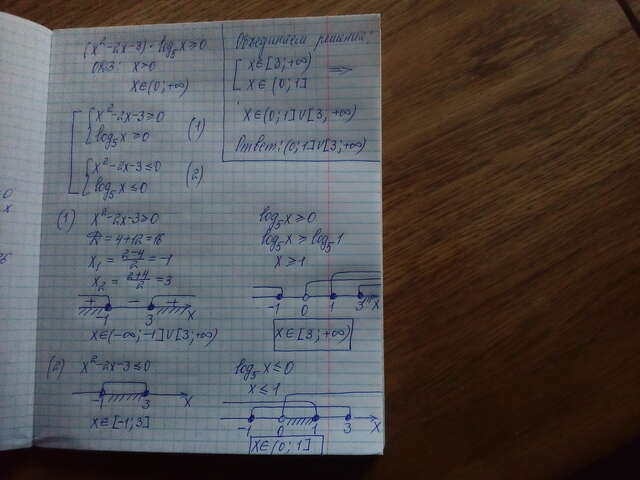 (x²-2x-3)·log₅x≥0
ОДЗ: x>0
x∈(0;+∞)
[ { x²-2x-3≥0
log₅x≥0 (1)
{ x²-2x-3≤0
log₅x≤0 (2)
Объединяем решения:
[ x∈[3;+∞)
x∈(0;1] ⇒
x∈(0;1]∪[3;+∞)
Ответ: (0;1]∪[3;+∞)
(1) x²-2x-3≥0
=4+12=16
x₁ = (2-4)/2 = -1
x₂ = (2+4)/2 = 3
+ - +
-1 3 x
x∈(-∞;-1]∪[3;+∞)
log₅x≥0
log₅x≥log₅1
x≥1
-1 0 1 3 x
x∈[3;+∞)
(2) x²-2x-3≤0
-1 3 x
x∈[-1;3]
log₅x≤0
x≤1
-1 0 1 3 x
x∈(0;1]